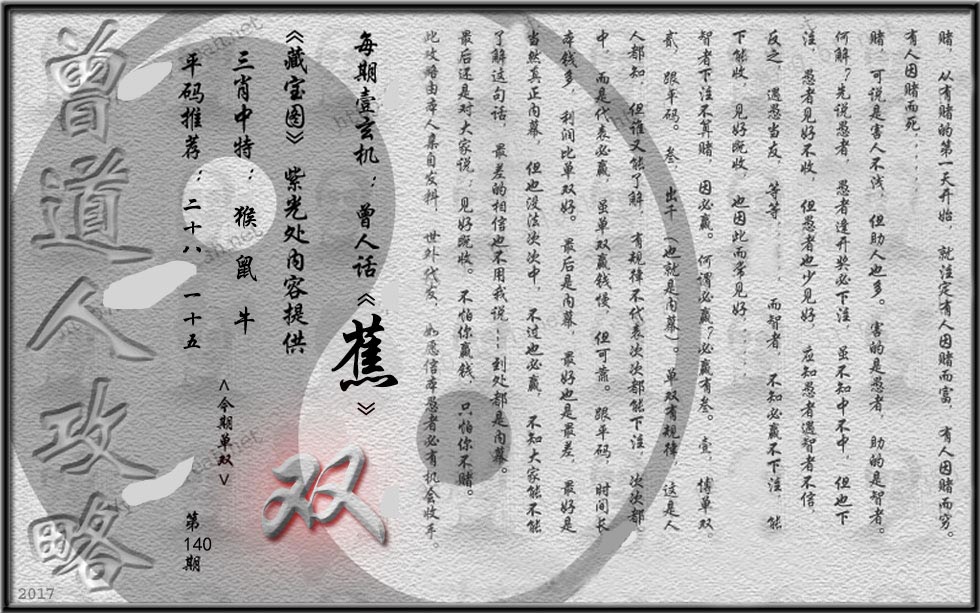 赌，从有赌的第一天开始，就注定有人因赌而富，有人因赌而穷。
有人因赌而死；；；；；
赌，可说是害人不浅，但助人也多。害的是愚者，助的是智者。
何解？先说愚者，愚者逢开奖必下注，虽不知中不中，但也下
注，愚者见好不收，但愚者也少见好，应知愚者遇智者不信，
反之，遇愚当友，等等……而智者，不知必赢不下注，能
下能收，见好既收，也因此而常见好……
智者下注不算赌，因必赢。何谓必赢？必赢有叁。壹，博单双。
贰，跟平码。叁，出千（也就是内幕）。单双有规律，这是人
人都知，但谁又能了解，有规律不代表次次都能下注，次次都
中，而是代表必赢，虽单双赢钱慢，但可靠。跟平码，时间长
本钱多，利润比单双好。最后是内幕，最好也是最差，最好是
当然真正内幕，但也没法次次中，不过也必赢，不知大家能不能
了解这句话，最差的相信也不用我说……到处都是内幕。
最后还是对大家说；见好既收。不怕你赢钱，只怕你不赌。
此攻略由本人集自发料，世外代友，如愿信本愚者必有机会收平。
每期壹玄机：曾人话《蕉》
《藏宝图》紫光处内容提供
三肖中特：猴 鼠 牛
平码推荐：二十八 一十五
<今期单双>
双
第140期
曾道人攻略
2017